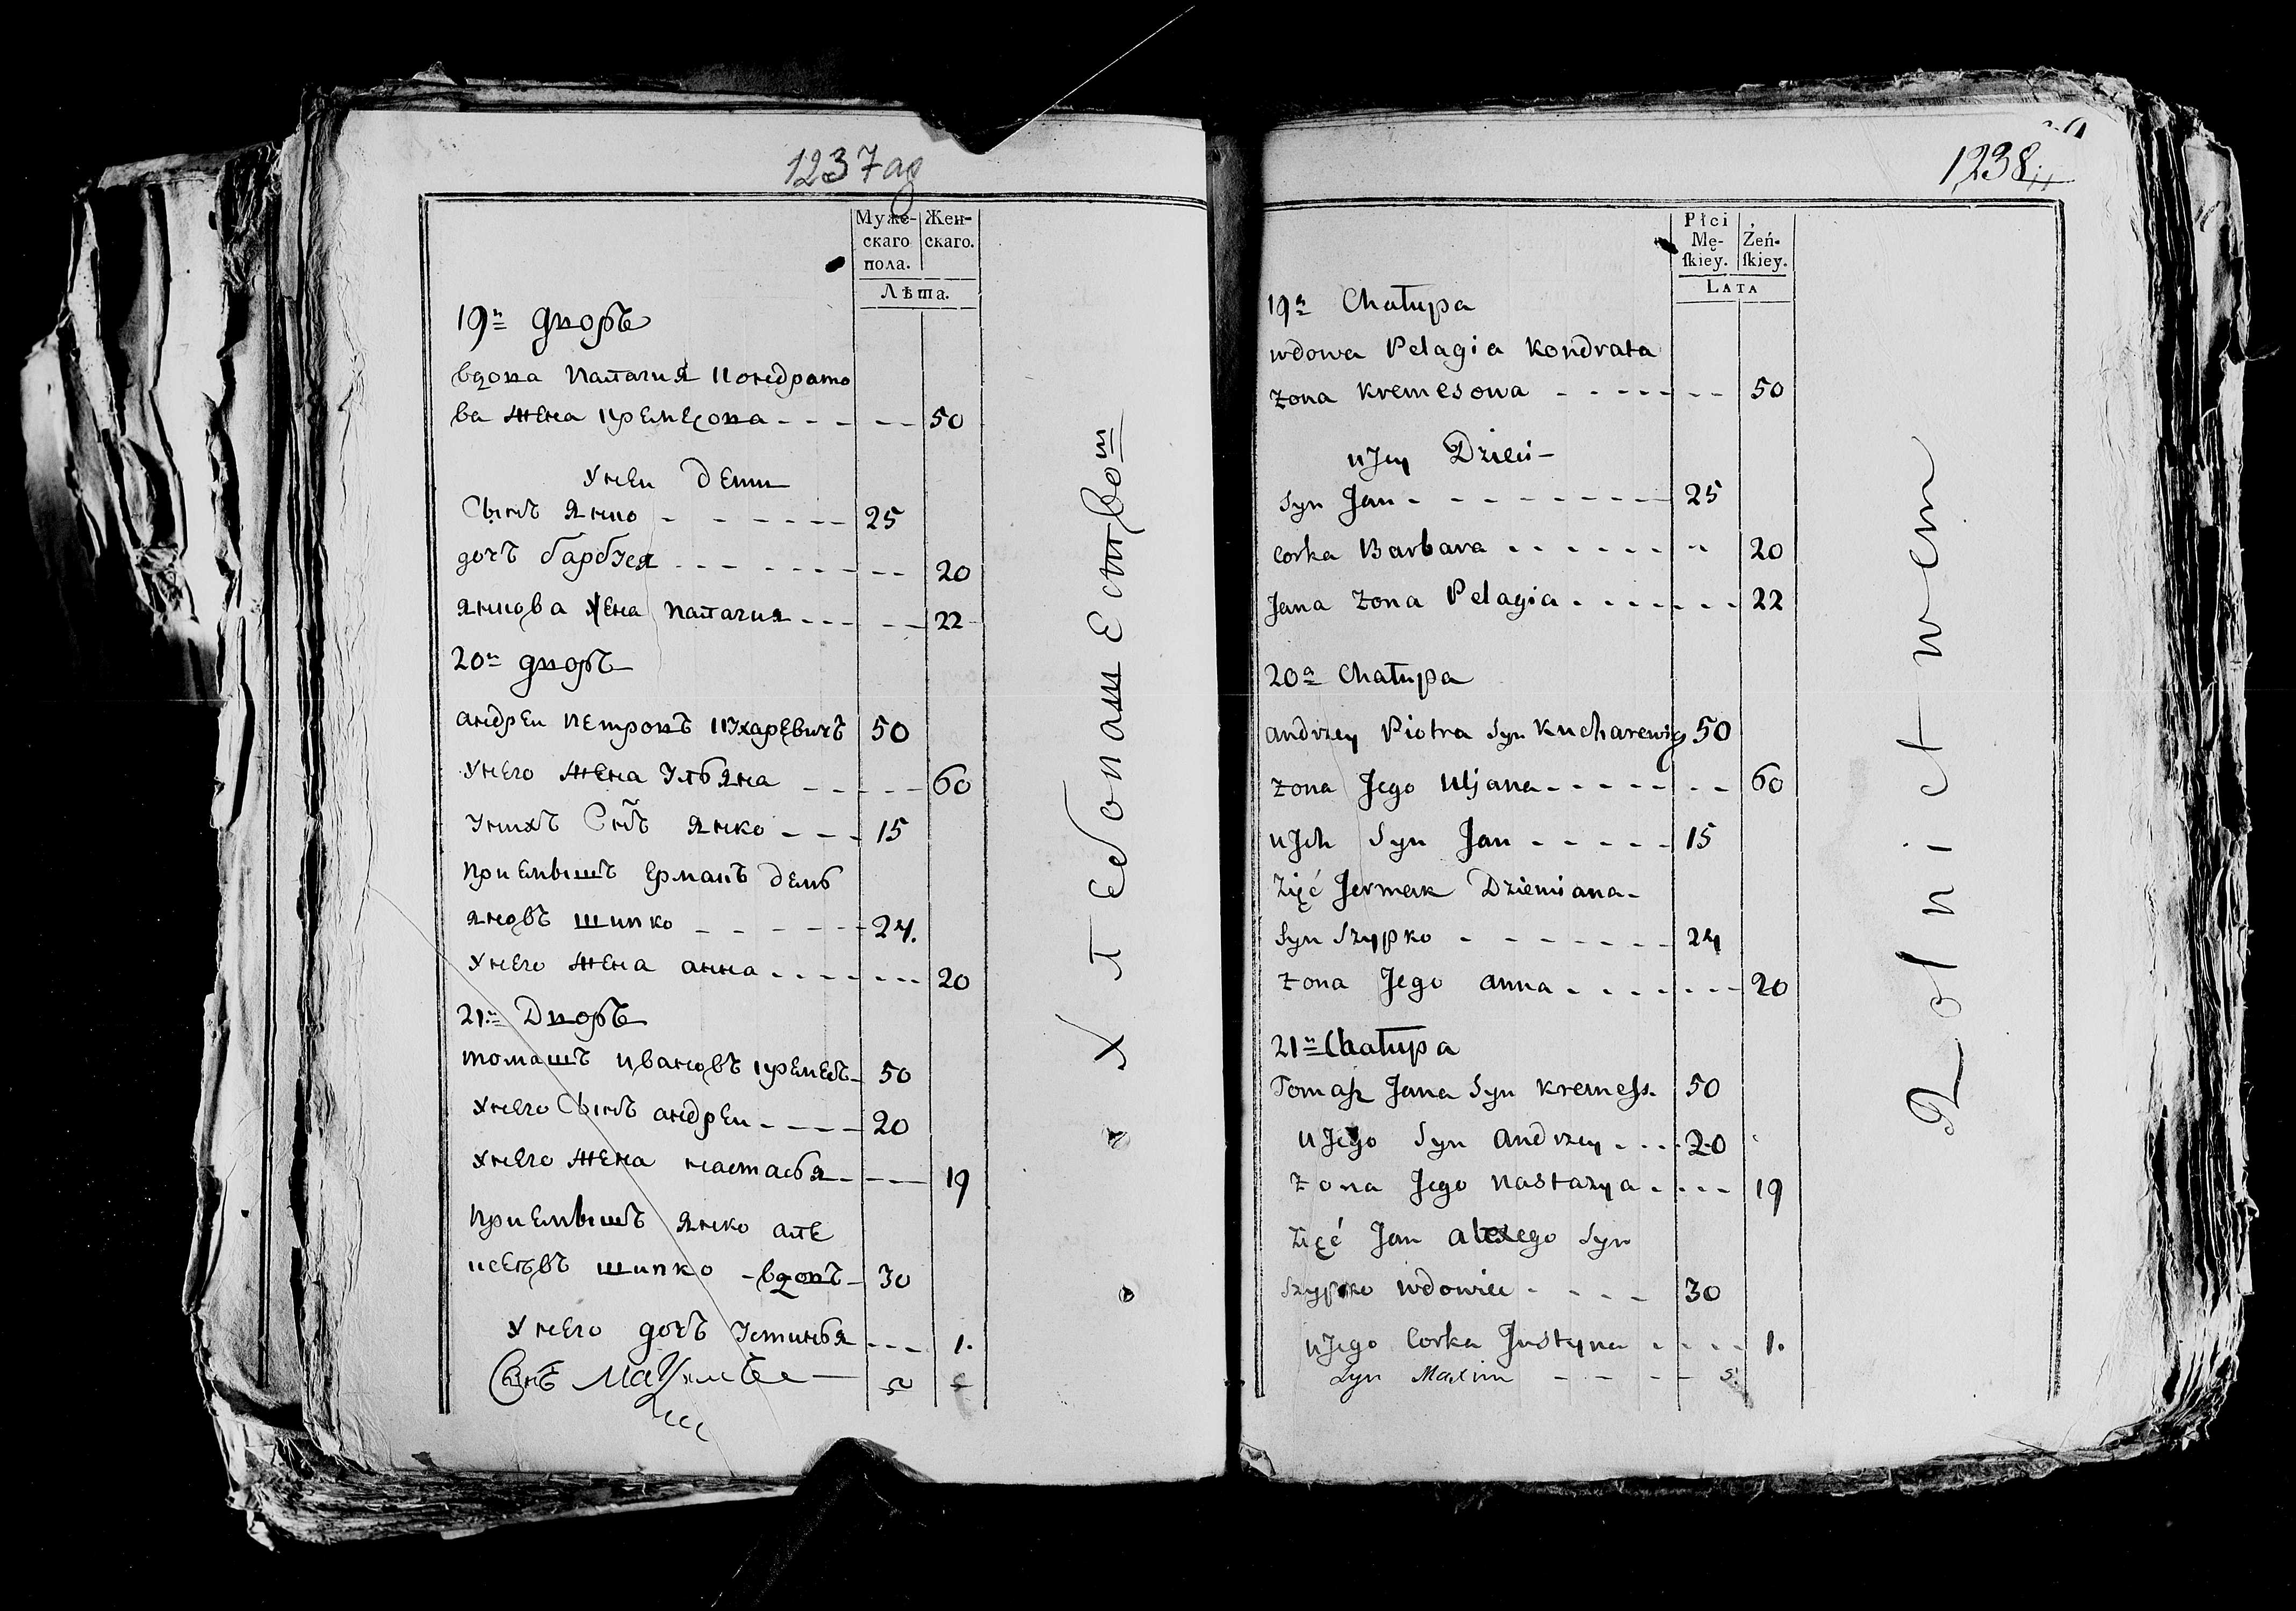 1237
Муже-
скаго
пола.
Жен-
скаго.
Лѣта.
19й дворъ
вдова Палагия Кондрато
ва жена Кремесова - - - - - 50
У неи дети
Сынъ Янко - - - - - - 25
дочъ барбуся - - - - - - - 20
Янкова жена Палагия - - - - - 22
20й дворъ
андреи Петровъ Кухаревичъ 50
У него жена Ульяна - - - - - 60
У нихъ Снъ Янко - - - 15
Приемышъ Ермакъ демь
яновъ шипко - - - - - - 24.
У него жена анна - - - - - - - 20
21й Дворъ
томашъ Ивановъ Кремесъ - 50
У него Сынъ андреи - - - - 20
У него жена настасья - - - - 19
Приемышъ Янко але
ксеевъ шипко - вдовъ - 30
У него дочъ Устинья - - - 1.
Сынъ
Хлебопашеством
1238
Płci
Mę-
ſkiey.
Żeń-
ſkiey.
LATA
19a Chałupa
wdowa Pelagia Kondrata
żona Kremesowa - - - - - - - 50
u Jey Dzieci -
Syn Jan - - - - - - - - - 25
Corka Barbara - - - - - - - - 20
Jana żona Pelagia - - - - - - - 22
20a Chałupa
andrzey Piotra Syn Kucharewicz 50
żona Jego Uljana - - - - - - - 60
u Ich Syn Jan - - - - - 15
Zięć Jermak Dziemiana -
Syn Szypko - - - - - - - 24
żona Jego anna - - - - - - - 20
21a Chałupa
Tomasz Jana Syn Kremess. 50
u Jego Syn andrzey - - - - 20
żona Jego Nastazya - - - - 19
Zięć Jan alexego Syn
Szypko wdowiec - - - - 30
u Jego Corka Justyna - - - - 1.
Syn Maxim - - - - 5.
Rolnictwem